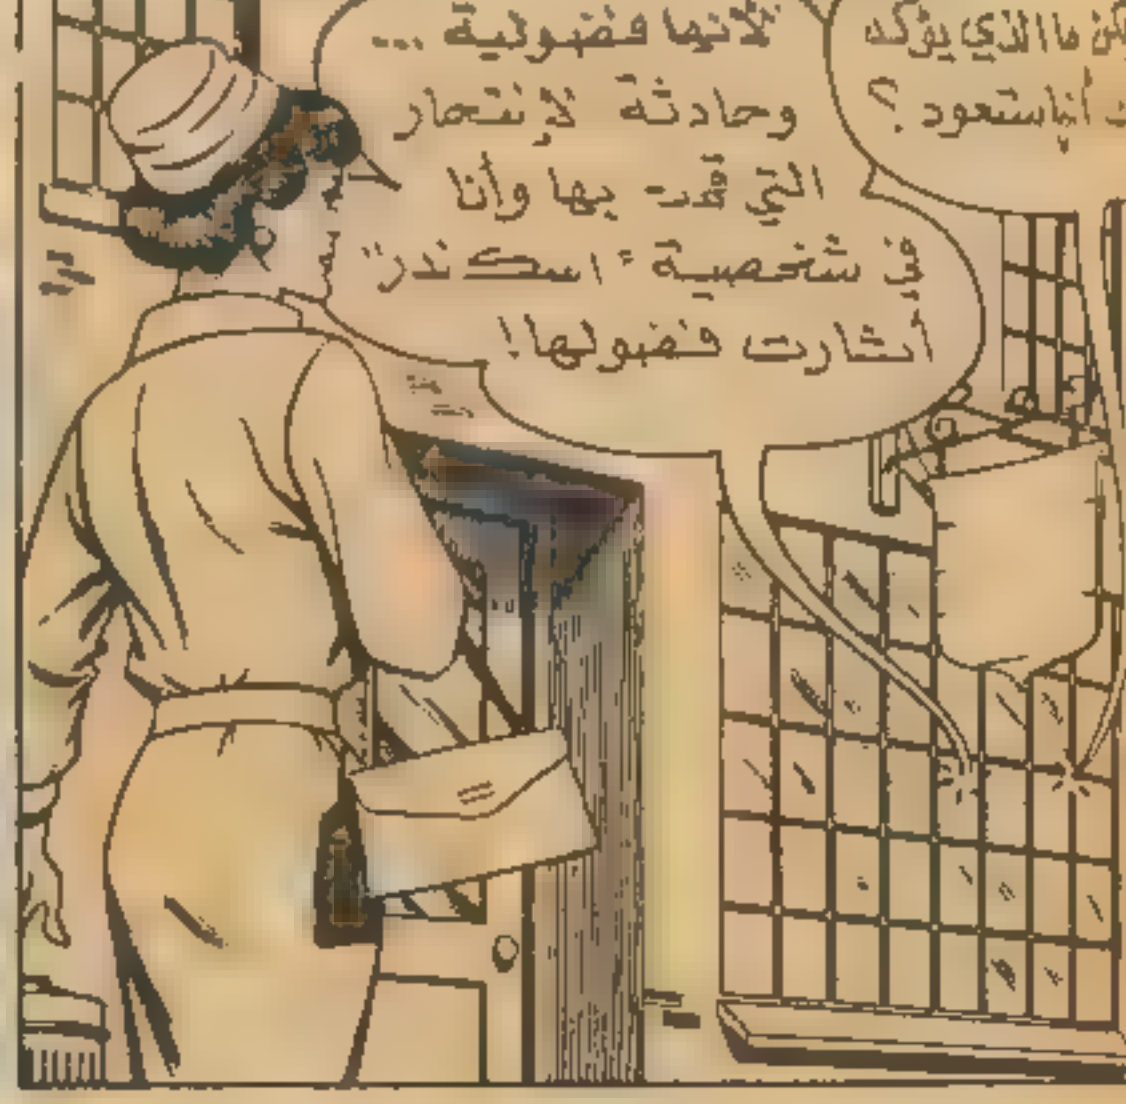 ما الذي يؤكد
أنها ستعود ؟
لأنها فضولية ...
وحادثة لإنتحار
التي قمت بها وأنا
في شخصية "اسكندر"
أثارت فضولها!